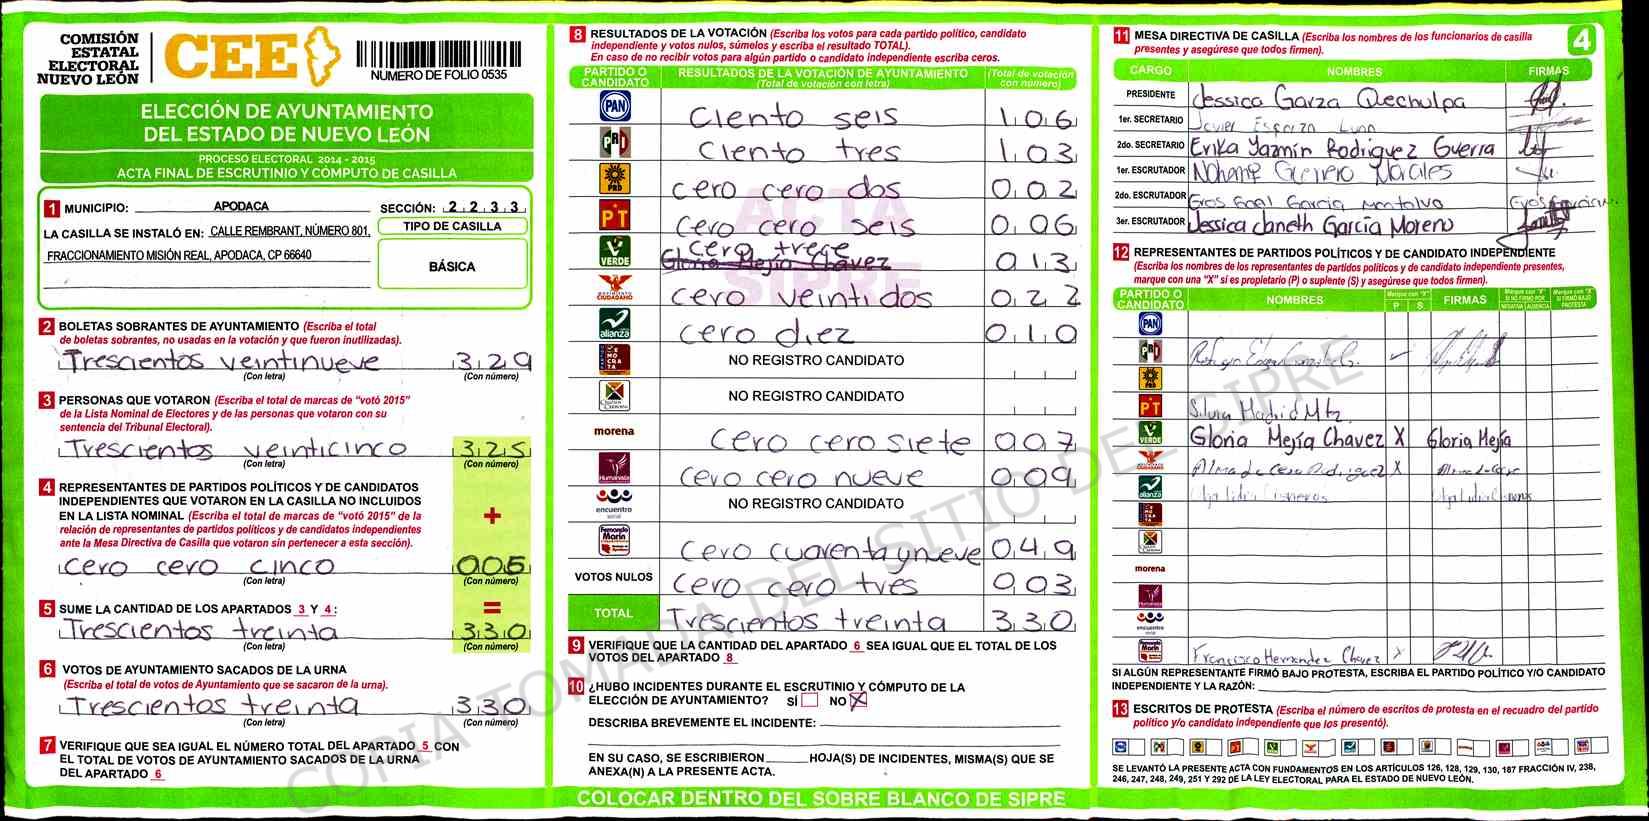 COMISIÓN
ESTATAL
ELECTORAL
NUEVO LEÓN
CEE
NÚMERO DE FOLIO 0535
ELECCIÓN DE AYUNTAMIENTO
DEL ESTADO DE NUEVO LEÓN
PROCESO ELECTORAL 2014 - 2015
ACTA FINAL DE ESCRUTINIO Y CÓMPUTO DE CASILLA
1 MUNICIPIO: APODACA SECCIÓN: 2 2 3 3
LA CASILLA SE INSTALÓ EN: CALLE REMBRANT, NÚMERO 801,
FRACCIONAMIENTO MISIÓN REAL, APODACA, CP 66640
TIPO DE CASILLA
BÁSICA
2 BOLETAS SOBRANTES DE AYUNTAMIENTO (Escriba el total
de boletas sobrantes, no usadas en la votación y que fueron inutilizadas).
Trescientos veintinueve 329
(Con letra) (Con número)
3 PERSONAS QUE VOTARON (Escriba el total de marcas de “votó 2015”
de la Lista Nominal de Electores y de las personas que votaron con su
sentencia del Tribunal Electoral).
Trescientos veinticinco 325
(Con letra) (Con número)
4 REPRESENTANTES DE PARTIDOS POLÍTICOS Y DE CANDIDATOS
INDEPENDIENTES QUE VOTARON EN LA CASILLA NO INCLUIDOS
EN LA LISTA NOMINAL (Escriba el total de marcas de “votó 2015” de la
relación de representantes de partidos políticos y de candidatos independientes
ante la Mesa Directiva de Casilla que votaron sin pertenecer a esta sección).
+
cero cero cinco 005
(Con letra) (Con número)
=
5 SUME LA CANTIDAD DE LOS APARTADOS 3 Y 4 :
Trescientos treinta 330
(Con letra) (Con número)
6 VOTOS DE AYUNTAMIENTO SACADOS DE LA URNA
(Escriba el total de votos de Ayuntamiento que se sacaron de la urna).
Trescientos treinta 330
(Con letra) (Con número)
7 VERIFIQUE QUE SEA IGUAL EL NÚMERO TOTAL DEL APARTADO 5 CON
EL TOTAL DE VOTOS DE AYUNTAMIENTO SACADOS DE LA URNA
DEL APARTADO 6
8 RESULTADOS DE LA VOTACIÓN (Escriba los votos para cada partido político, candidato
independiente y votos nulos, súmelos y escriba el resultado TOTAL).
En caso de no recibir votos para algún partido o candidato independiente escriba ceros.
PARTIDO O CANDIDATO RESULTADOS DE LA VOTACIÓN DE AYUNTAMIENTO (Total de votación con letra) (Total de votación con número)
PAN Ciento seis 106
PRI Ciento tres 103
PRD cero cero dos 002
PT cero cero seis 006
cero trece
VERDE Gloria Mejía Chavez 013
MOVIMIENTO CIUDADANO cero veintidos 022
alianza cero diez 010
NO REGISTRO CANDIDATO
NO REGISTRO CANDIDATO
morena cero cero siete 007
Humanista cero cero nueve 009
encuentro social NO REGISTRO CANDIDATO
Fernando Marín cero cuarenta y nueve 049
VOTOS NULOS cero cero tres 003
TOTAL Trescientos treinta 330
ACTA
SIPRE
9 VERIFIQUE QUE LA CANTIDAD DEL APARTADO 6 SEA IGUAL QUE EL TOTAL DE LOS
VOTOS DEL APARTADO 8
10 ¿HUBO INCIDENTES DURANTE EL ESCRUTINIO Y CÓMPUTO DE LA
ELECCIÓN DE AYUNTAMIENTO? SÍ NO X
DESCRIBA BREVEMENTE EL INCIDENTE:
EN SU CASO, SE ESCRIBIERON HOJA(S) DE INCIDENTES, MISMA(S) QUE SE
ANEXA(N) A LA PRESENTE ACTA.
COLOCAR DENTRO DEL SOBRE BLANCO DE SIPRE
11 MESA DIRECTIVA DE CASILLA (Escriba los nombres de los funcionarios de casilla
presentes y asegúrese que todos firmen).
4
CARGO NOMBRES FIRMAS
PRESIDENTE Jessica Garza Quechulpa
1er. SECRETARIO Javier Esparza Luna
2do. SECRETARIO Erika Yazmín Rodriguez Guerra
1er. ESCRUTADOR
2do. ESCRUTADOR Eros Gael Garcia Montalvo
3er. ESCRUTADOR Jessica Janeth García Moreno
12 REPRESENTANTES DE PARTIDOS POLÍTICOS Y DE CANDIDATO INDEPENDIENTE
(Escriba los nombres de los representantes de partidos políticos y de candidato independiente presentes,
marque con una “X” si es propietario (P) o suplente (S) y asegúrese que todos firmen).
PARTIDO O CANDIDATO NOMBRES Marque con "X" P S FIRMAS Marque con "X" SI NO FIRMÓ POR NEGATIVA AUSENCIA Marque con "X" SI FIRMÓ BAJO PROTESTA
PAN
PRI
PRD
PT Silvia Madrid Mtz
VERDE Gloria Mejía Chavez X Gloria Mejía
CIUDADANO Rodriguez X
alianza Olga Lidia Cisneros Olga Lidia Cisneros
morena
Humanista
encuentro social
Fernando Marín Francisco Hernandez Chavez X
SI ALGÚN REPRESENTANTE FIRMÓ BAJO PROTESTA, ESCRIBA EL PARTIDO POLÍTICO Y/O CANDIDATO
INDEPENDIENTE Y LA RAZÓN:
13 ESCRITOS DE PROTESTA (Escriba el número de escritos de protesta en el recuadro del partido
político y/o candidato independiente que los presentó).
SE LEVANTÓ LA PRESENTE ACTA CON FUNDAMENTOS EN LOS ARTÍCULOS 126, 128, 129, 130, 187 FRACCIÓN IV, 238,
246, 247, 248, 249, 251 Y 292 DE LA LEY ELECTORAL PARA EL ESTADO DE NUEVO LEÓN.
COPIA TOMADA DEL SITIO DE SIPRE